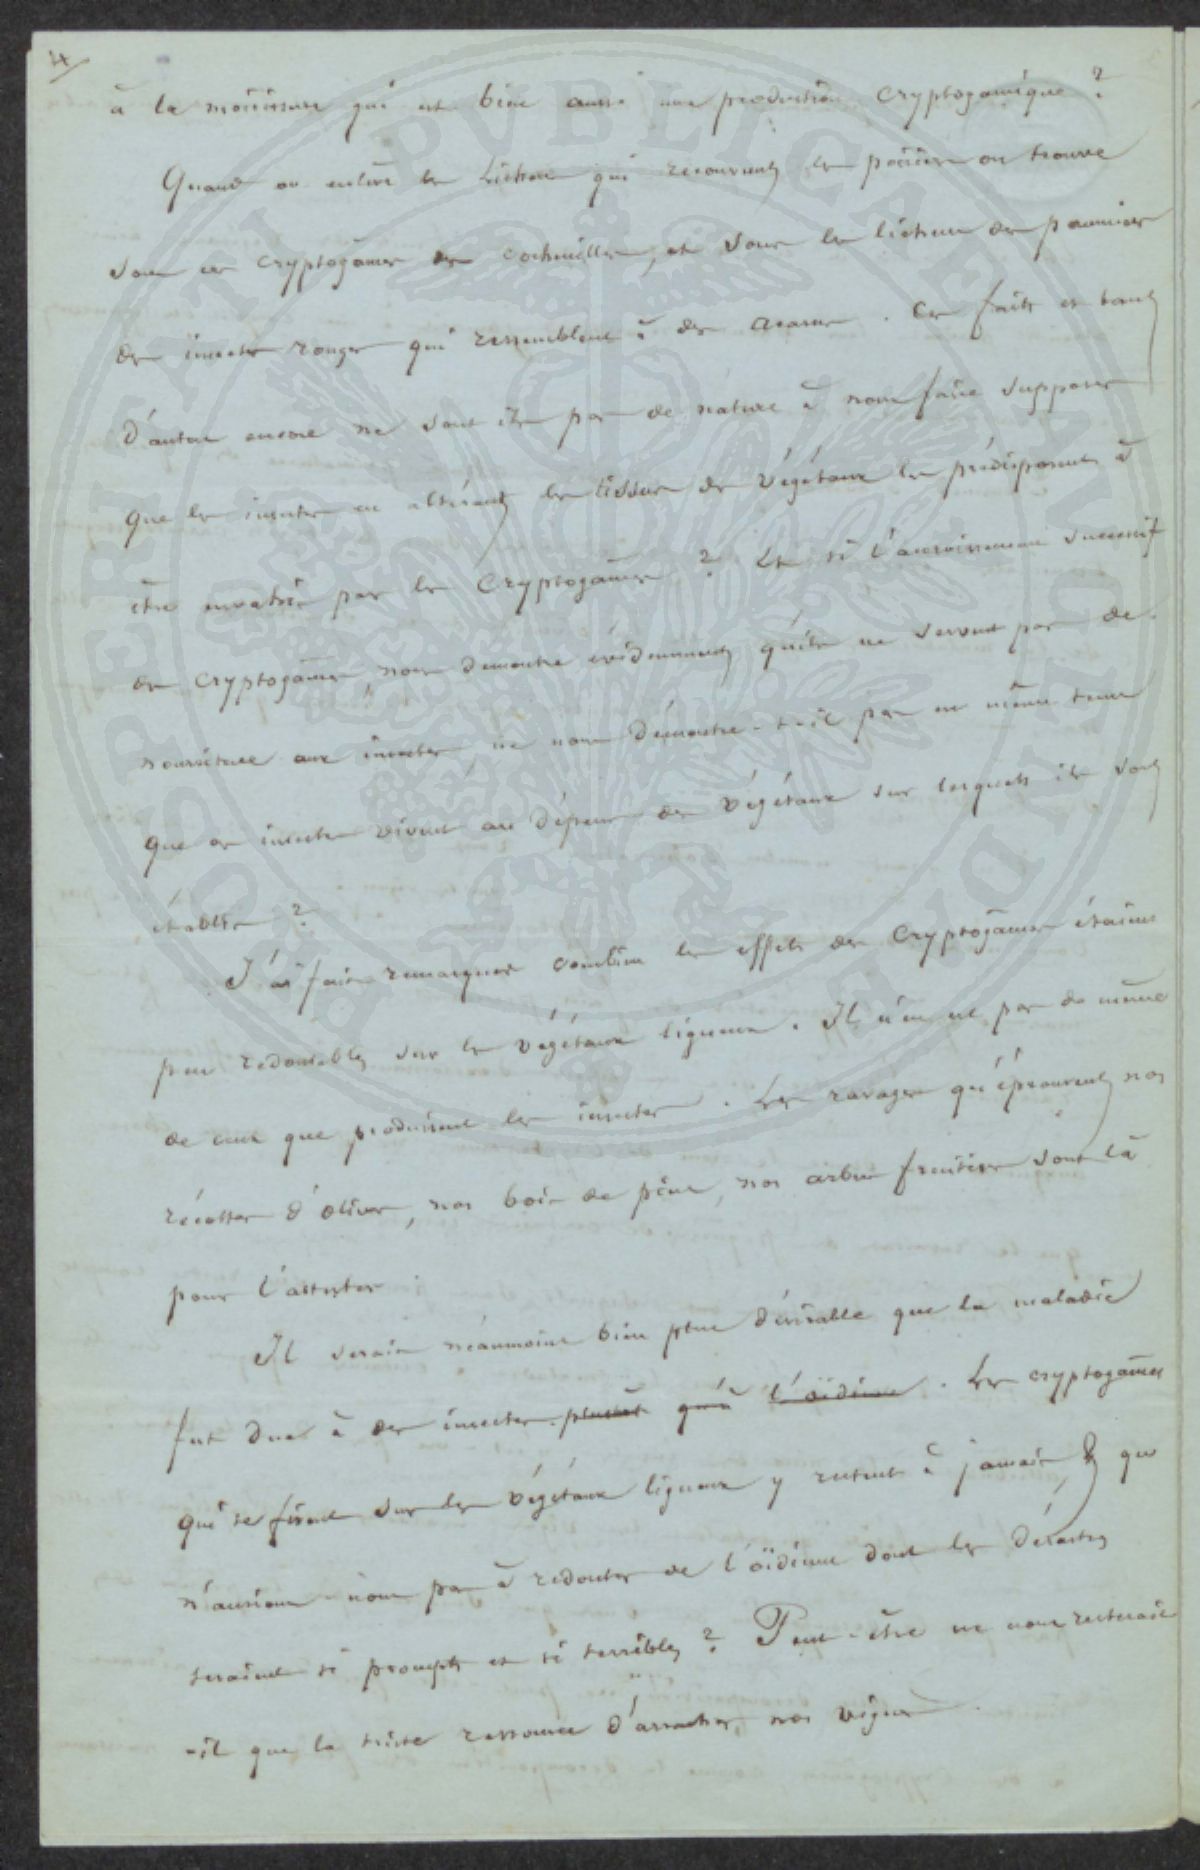 4/
à la moisissure qui est bien aussi une production cryptogamique ?
Quand on enlève les lichens qui recouvrent les poiriers on trouve
sous ces cryptogames des cochenilles, et sous les lichens des pommiers
des insectes rouges qui ressemblent à des acarus. Ces faits et tant
d'autres encore ne sont ils pas de nature à nous faire supposer
que les insectes en altérant les tissus des végétaux les prédisposent à
être envahis par les cryptogames ? Et si l'accroissement successif
des cryptogames, nous démontre évidemment qu'ils ne servent pas de
nourriture aux insectes, ne nous démontre-t-il pas en même tems
que ces insectes vivent aux dépens des végétaux sur lesquels ils sont
établis ?
J'ai fait remarquer combien les effets des cryptogames étaient
peu redoutables sur les végétaux ligneux. Il n'en est pas de même
de ceux que produisent les insectes. Les ravages qu'éprouvent nos
récoltes d'olives, nos bois de pins, nos arbres fruitiers sont là
pour l'attester.
Il serait néanmoins bien plus désirable que la maladie
fut due à des insectes plustôt qu'à l'oïdium. Les cryptogames
qui se fixent sur les végétaux ligneux y restent à jamais, & que
n'aurions-nous pas à redouter de l'oïdium dont les désastres
seraient si prompts et si terribles ? Peut-être ne nous resterait
-il que la triste ressource d'arracher nos vignes.
PROSPERITATI PVBLICAE AVGENDAE